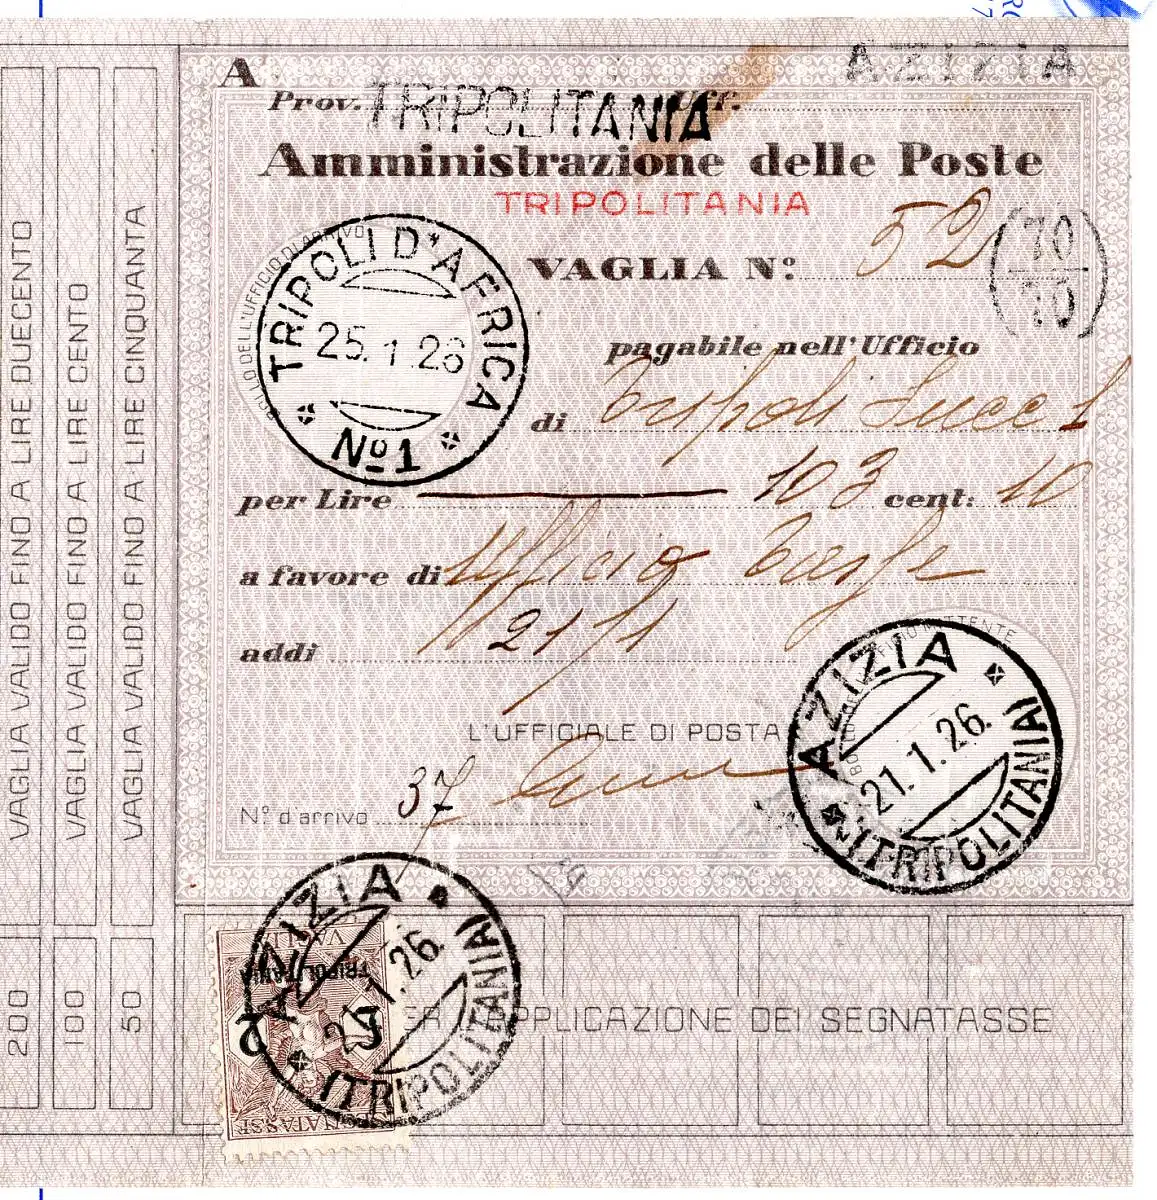 AZIZIA
A
Prov. TRIPOLITANIA Uff.
Amministrazione delle Poste
TRIPOLITANIA
VAGLIA Nº 52
70
70
BOLLO DELL'UFFICIO DI ARRIVO
TRIPOLI D'AFRICA
25.1.26
Nº1
pagabile nell'Ufficio
di Tripoli Succ 1
per Lire 103 cent: 10
a favore di Ufficio Tasse
addi 21/1
L'UFFICIALE DI POSTA
Nº d'arrivo 37
AZIZIA
21.1.26.
(TRIPOLITANIA)
AZIZIA
21.1.26.
(TRIPOLITANIA)
VAGLIA
TRIPOLITANIA
SEGNATASSE
PER L'APPLICAZIONE DEI SEGNATASSE
VAGLIA VALIDO FINO A LIRE DUECENTO
VAGLIA VALIDO FINO A LIRE CENTO
VAGLIA VALIDO FINO A LIRE CINQUANTA
200
100
50